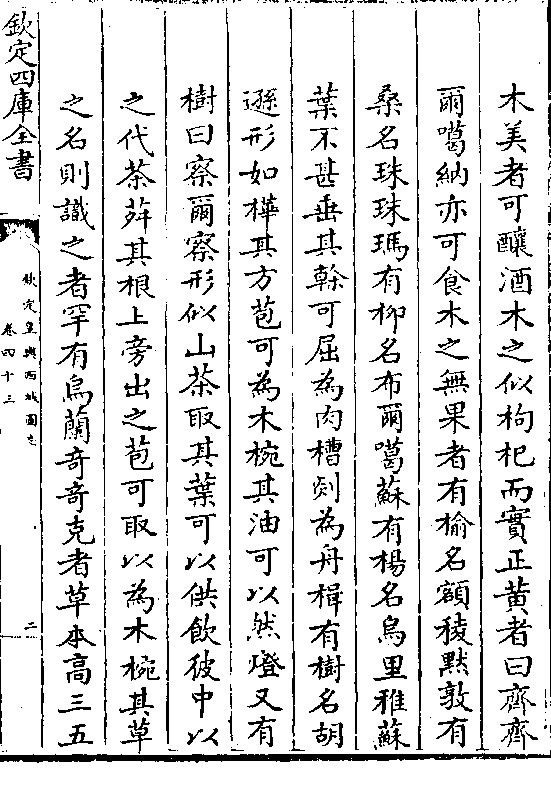 木美者可釀酒木之似枸杞而實正黄者曰齊齊
爾噶納亦可食木之無果者有榆名額稜黙敦有
桑名珠珠瑪有柳名布爾噶蘇有楊名烏里雅蘇
葉不甚垂其幹可屈為肉槽剡為舟楫有樹名胡
遜形如樺其方苞可為木椀其油可以然燈又有
樹曰察爾察形似山茶取其葉可以供飲彼中以
之代茶荈其根上旁出之苞可取以為木椀其草
之名則識之者罕有烏蘭竒竒克者草本高三五
欽定四庫全書
欽定皇輿西域圖志
卷四十三
二